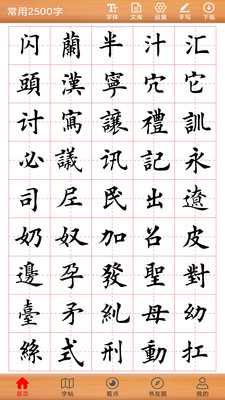 常用2500字
字体 文库 设置 手写 下载
闪 蘭 半 汁 汇
頭 漢 寧 穴 它
讨 寫 讓 禮 訓
必 議 訊 記 永
司 尼 民 出 遼
奶 奴 加 召 皮
邊 孕 發 聖 對
臺 矛 糾 母 幼
絲 式 刑 動 扛
首页 字帖 看点 书友圈 我的